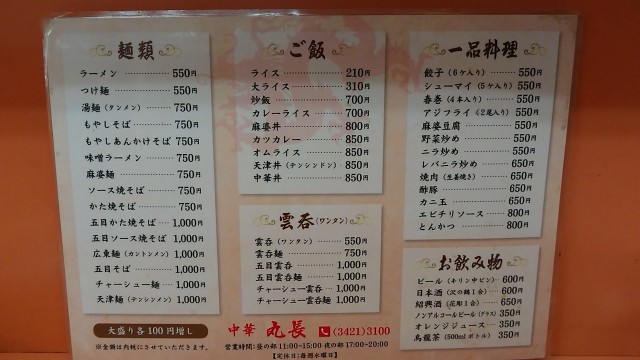 麺類
ラーメン 550円
つけ麺 550円
湯麺(タンメン) 750円
もやしそば 750円
もやしあんかけそば 750円
味噌ラーメン 750円
麻婆麺 750円
ソース焼そば 750円
かた焼そば 750円
五目かた焼そば 1,000円
五目ソース焼そば 1,000円
広東麺(カントンメン) 1,000円
五目そば 1,000円
チャーシュー麺 1,000円
天津麺(テンシンメン) 1,000円
大盛り各100円増し
※金額は内税にさせていただきます。
ご飯
ライス 210円
大ライス 310円
炒飯 700円
カレーライス 700円
麻婆丼 800円
カツカレー 850円
オムライス 850円
天津丼(テンシンドン) 850円
中華丼 850円
雲呑(ワンタン)
雲呑(ワンタン) 550円
雲呑麺 750円
五目雲呑 1,000円
五目雲呑麺 1,000円
チャーシュー雲呑 1,000円
チャーシュー雲呑麺 1,000円
一品料理
餃子(6ケ入り) 550円
シューマイ(5ケ入り) 550円
春巻(4本入り) 550円
アジフライ(2尾入り) 550円
麻婆豆腐 550円
野菜炒め 550円
ニラ炒め 550円
レバニラ炒め 650円
焼肉(生姜焼き) 650円
酢豚 650円
カニ玉 650円
エビチリソース 800円
とんかつ 800円
お飲み物
ビール(キリン中ビン) 600円
日本酒(沢の鶴1合) 600円
紹興酒(花彫1合) 650円
ノンアルコールビール(グラス) 350円
オレンジジュース 350円
烏龍茶(500mlボトル) 350円
中華 丸長 (3421)3100
営業時間:昼の部 11:00~15:00 夜の部 17:00~20:00
【定休日:毎週水曜日】